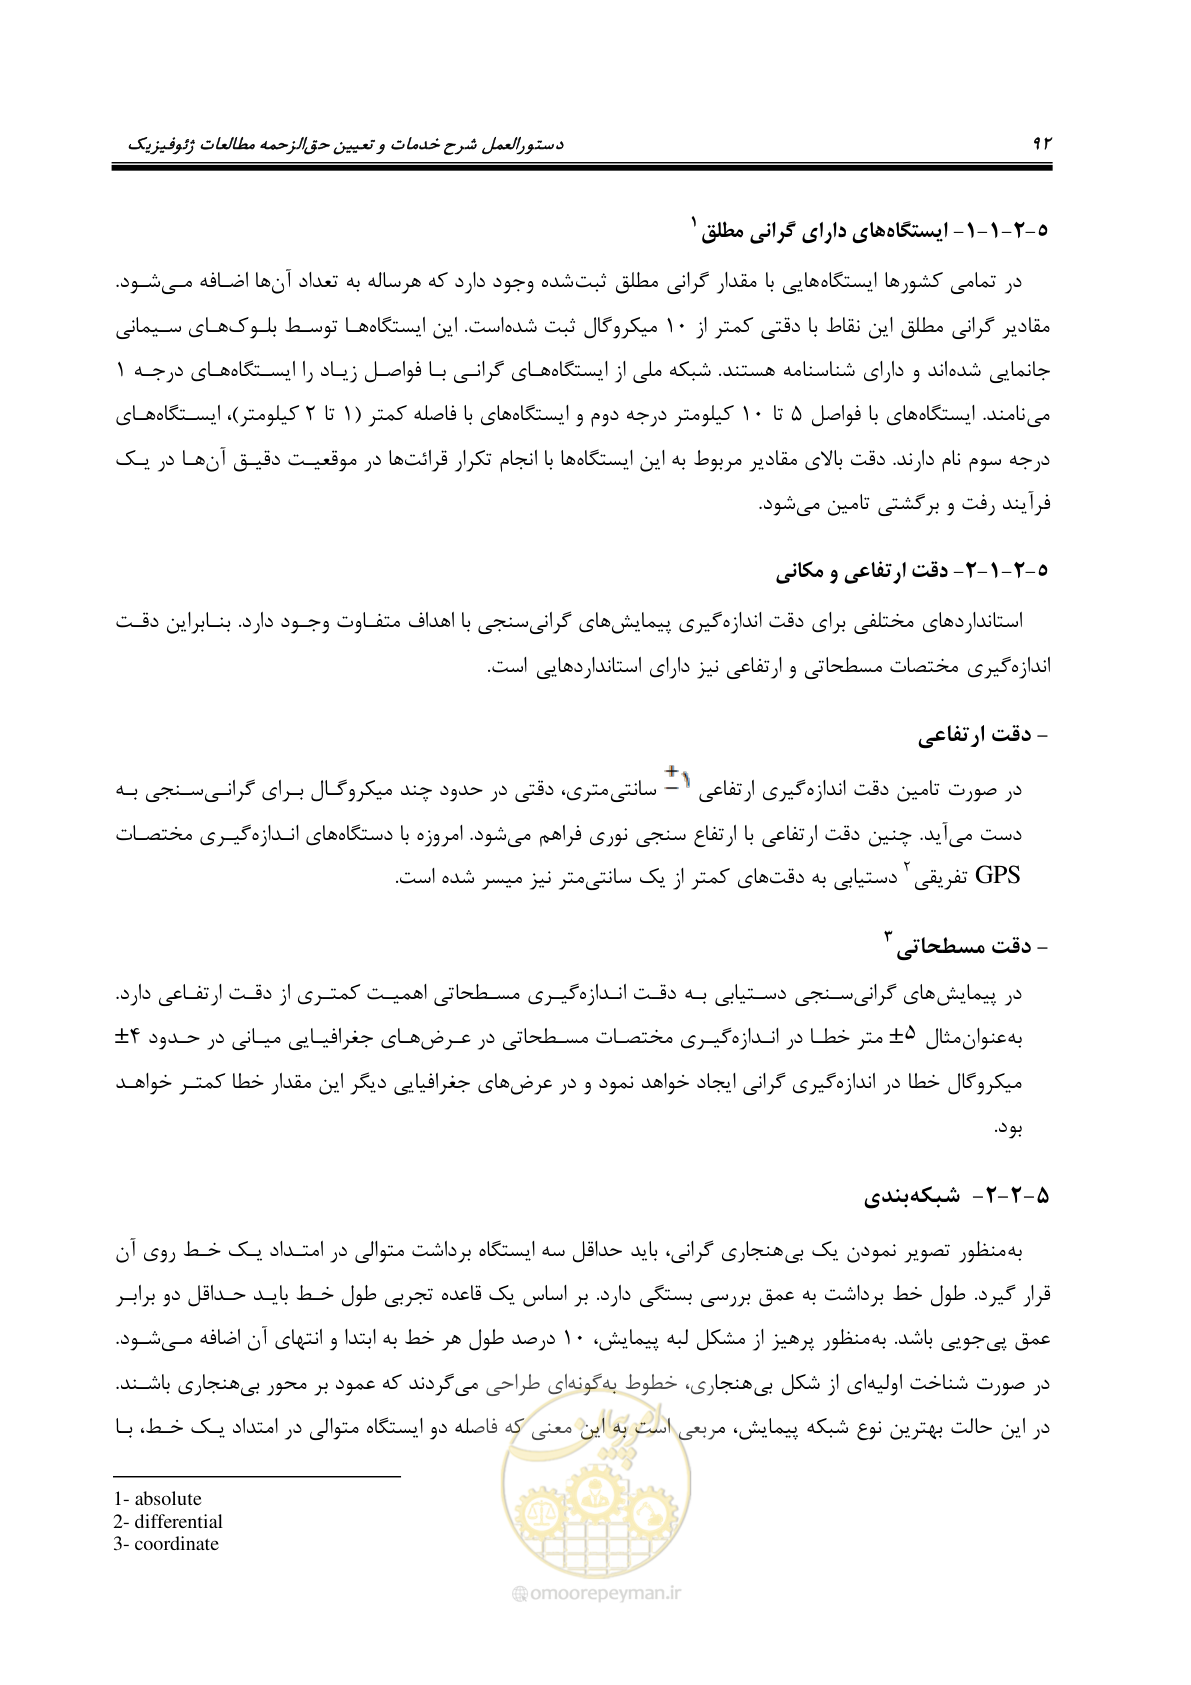 ۹۲ دستورالعمل شرح خدمات و تعیین حق‌الزحمه مطالعات ژئوفیزیک
۵-۲-۱-۱- ایستگاه‌های دارای گرانی مطلق۱
در تمامی کشورها ایستگاه‌هایی با مقدار گرانی مطلق ثبت‌شده وجود دارد که هرساله به تعداد آن‌ها اضافه می‌شود.
مقادیر گرانی مطلق این نقاط با دقتی کمتر از ۱۰ میکروگال ثبت شده‌است. این ایستگاه‌ها توسط بلوک‌های سیمانی
جانمایی شده‌اند و دارای شناسنامه هستند. شبکه ملی از ایستگاه‌های گرانی با فواصل زیاد را ایستگاه‌های درجه ۱
می‌نامند. ایستگاه‌های با فواصل ۵ تا ۱۰ کیلومتر درجه دوم و ایستگاه‌های با فاصله کمتر (۱ تا ۲ کیلومتر)، ایستگاه‌های
درجه سوم نام دارند. دقت بالای مقادیر مربوط به این ایستگاه‌ها با انجام تکرار قرائت‌ها در موقعیت دقیق آن‌ها در یک
فرآیند رفت و برگشتی تامین می‌شود.
۵-۲-۱-۲- دقت ارتفاعی و مکانی
استانداردهای مختلفی برای دقت اندازه‌گیری پیمایش‌های گرانی‌سنجی با اهداف متفاوت وجود دارد. بنابراین دقت
اندازه‌گیری مختصات مسطحاتی و ارتفاعی نیز دارای استانداردهایی است.
- دقت ارتفاعی
در صورت تامین دقت اندازه‌گیری ارتفاعی ±۱ سانتی‌متری، دقتی در حدود چند میکروگال برای گرانی‌سنجی به
دست می‌آید. چنین دقت ارتفاعی با ارتفاع سنجی نوری فراهم می‌شود. امروزه با دستگاه‌های اندازه‌گیری مختصات
GPS تفریقی۲ دستیابی به دقت‌های کمتر از یک سانتی‌متر نیز میسر شده است.
- دقت مسطحاتی۳
در پیمایش‌های گرانی‌سنجی دستیابی به دقت اندازه‌گیری مسطحاتی اهمیت کمتری از دقت ارتفاعی دارد.
به‌عنوان‌مثال ±۵ متر خطا در اندازه‌گیری مختصات مسطحاتی در عرض‌های جغرافیایی میانی در حدود ±۴
میکروگال خطا در اندازه‌گیری گرانی ایجاد خواهد نمود و در عرض‌های جغرافیایی دیگر این مقدار خطا کمتر خواهد
بود.
۵-۲-۲- شبکه‌بندی
به‌منظور تصویر نمودن یک بی‌هنجاری گرانی، باید حداقل سه ایستگاه برداشت متوالی در امتداد یک خط روی آن
قرار گیرد. طول خط برداشت به عمق بررسی بستگی دارد. بر اساس یک قاعده تجربی طول خط باید حداقل دو برابر
عمق پی‌جویی باشد. به‌منظور پرهیز از مشکل لبه پیمایش، ۱۰ درصد طول هر خط به ابتدا و انتهای آن اضافه می‌شود.
در صورت شناخت اولیه‌ای از شکل بی‌هنجاری، خطوط به‌گونه‌ای طراحی می‌گردند که عمود بر محور بی‌هنجاری باشند.
در این حالت بهترین نوع شبکه پیمایش، مربعی است به این معنی که فاصله دو ایستگاه متوالی در امتداد یک خط، با
1- absolute
2- differential
3- coordinate
امور پیمان
@omoorepeyman.ir